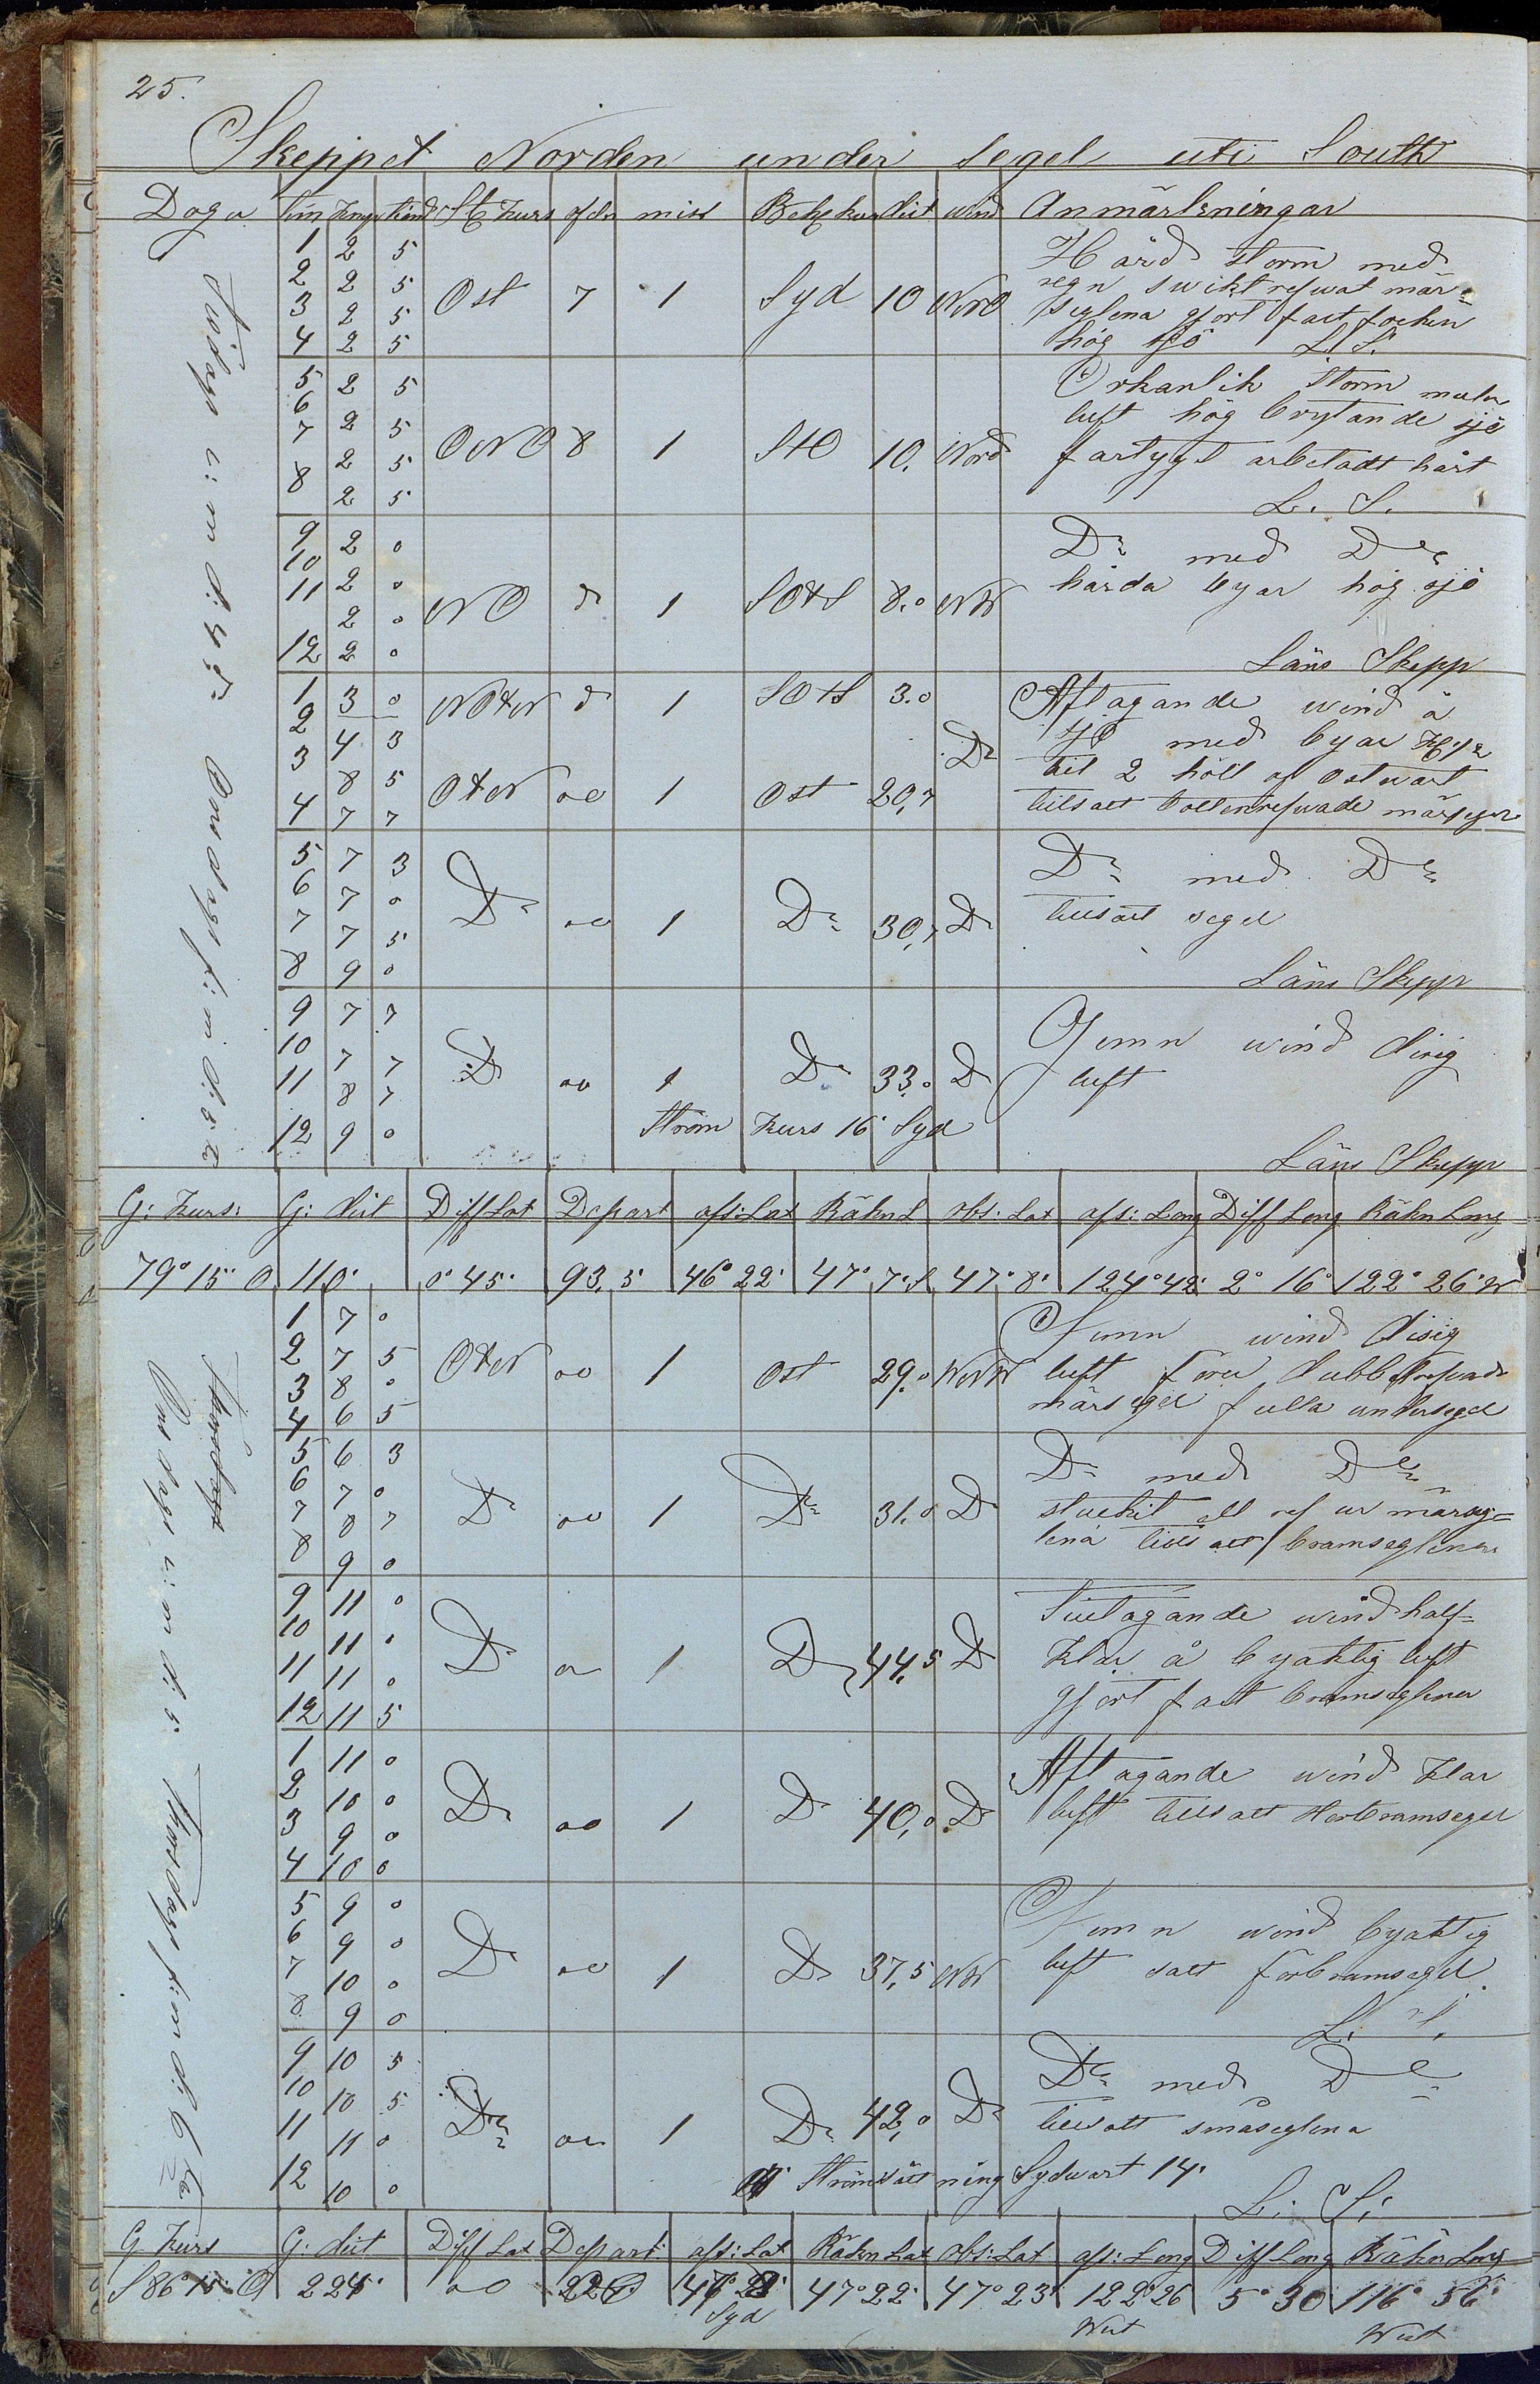 25.
Skeppet Norden under segel uti South
Dag a Tim Knop tiend St Kurs afdr misv Beh kurs dist wind Anmärkningar
Tisdags e: m d: 4de Onsdags f: m d: 5te
1 2 5 Hård storm med
2 2 5 Ost 7 1 Syd 10 NNO regn swiktrefwat mär=
3 2 5 seglena gjort fast focken
4 2 5 hög sjö L. S.
5 2 5 Orkanlik storm mulen
6 2 5 luft hög brytande sjö
7 2 5 ONO 8 1 StO 10. Nord fartyget arbetadt hårt
8 2 5 L. S.
9 2 0 Do med Do
10 2 0 hårda byar hög sjö
11 2 0 NO 1 SOtS 8.0 NW
12 2 0 Läns Skepp
1 3 0 NOtN 1 SOtS 3.0 Aftagande wind å
2 4 3 sjö med byar Kl 1/2
3 8 5 OtN oo 1 Ost 20,7 Do til 2 höll af Ostwart
4 7 7 tillsatt bottenrefwade märsegel
5 7 3 Do med Do
6 7 0 Do oo 1 Do 30,7 Do tillsatt segel
7 7 5
8 9 0 Läns Skepp
9 7 7 Jemn wind disig
10 7 7 Do oo 1 Do 33.0 Do luft
11 8 7
12 9 0 Ström Kurs 16' Syd
Läns Skepp
G: Kurs: G: dist Diff Lat Depart afs: Lat Räkn L obs: Lat afs: Long Diff Long Räkn Long
79° 15' O 110' 0° 45' 93,5 46° 22' 47° 7' S 47° 8' 124° 42' 2° 16' 122° 26' W
Onsdags e: m d: 5 Thorsdags f: m d: 6te
1 7 0 Jemn wind disig
2 7 5 OtN oo 1 Ost 29.0 WNW luft förer dubbeltrefwade
3 8 0 märsegel fulla undersegel
4 6 5
5 6 3 Do med Do
6 7 0 Do oo 1 Do 31.0 Do stuckit all ref ur märseg=
7 8 7 lena tillsatt bramseglena
8 9 0
9 11 0 Tiltagande wind half=
10 11 0 Do oo 1 Do 44,5 Do klar å byaktig luft
11 11 0 gjort fast bramseglena
12 11 5
1 11 0 Aftagande wind klar
2 10 0 Do oo 1 Do 40,0 Do luft tillsatt storbramsegel
3 9 0
4 10 0
5 9 0 Jemn wind byaktig
6 9 0 Do oo 1 Do 37,5 NW luft satt förbramsegel.
7 10 0
8 9 0 L. S.
9 10 5 Do med Do
10 10 5 Do oo 1 Do 42,0 Do tillsatt småseglena
11 11 0
12 10 0 Strömsättning Sydwart 14'
L: S:
G Kurs G: dist Diff Lat Depart: afs: Lat Räkn Lat obs: Lat afs: Long Diff Long Räkn Long
S 86° 15' O 224' oo 47° 47° 22' 47° 23' 122° 26 5° 30' 116° 56'
Syd West West